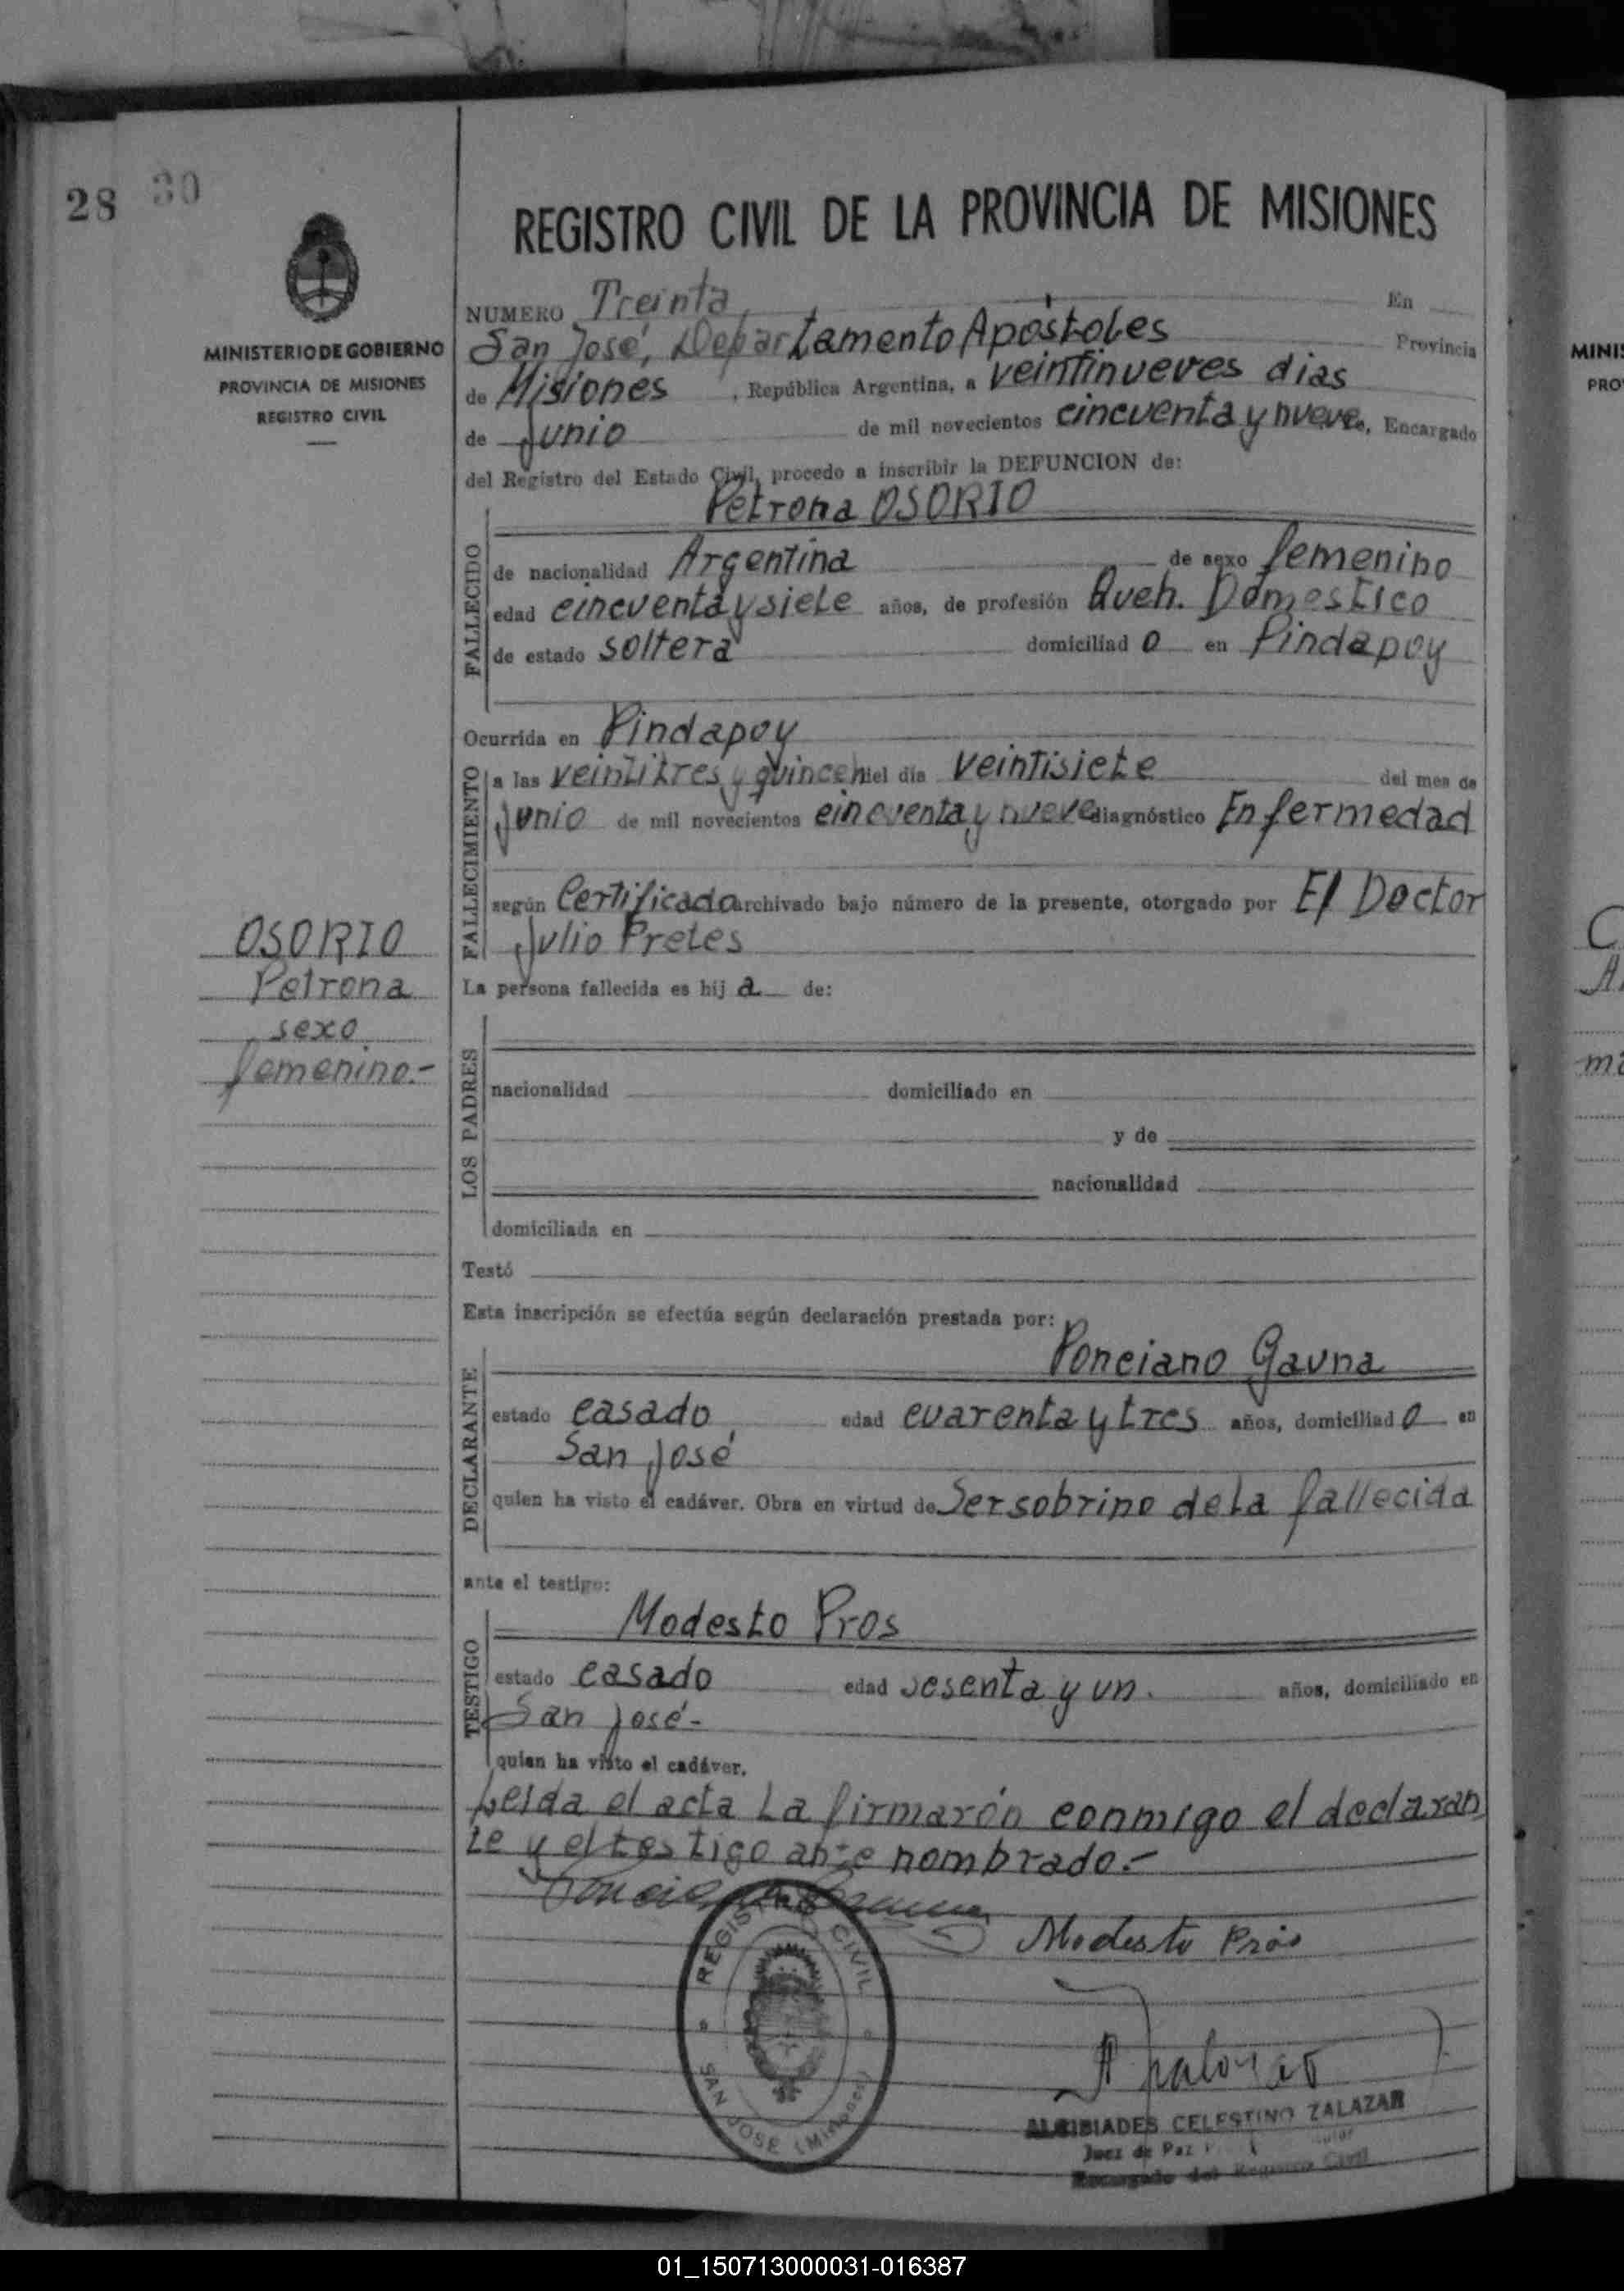 28 30
MINISTERIO DE GOBIERNO
PROVINCIA DE MISIONES
REGISTRO CIVIL
OSORIO
Petrona
sexo
femenino.-
REGISTRO CIVIL DE LA PROVINCIA DE MISIONES
NUMERO Treinta En
San José, Departamento Apóstoles Provincia
de Misiones, República Argentina, a veintinueves dias
de Junio de mil novecientos cincuenta y nueve, Encargado
del Registro del Estado Civil, procedo a inscribir la DEFUNCION de:
Petrona OSORIO
FALLECIDO
de nacionalidad Argentina de sexo femenino
edad cincuenta y siete años, de profesión Queh. Domestico
de estado soltera domiciliad o en Pindapoy
Ocurrida en Pindapoy
FALLECIMIENTO
a las veintitres y quince h del día veintisiete del mes de
junio de mil novecientos cincuenta y nueve diagnóstico Enfermedad
según Certificado archivado bajo número de la presente, otorgado por El Doctor
Julio Pretes
La persona fallecida es hij a de:
LOS PADRES
nacionalidad domiciliado en
y de
nacionalidad
domiciliada en
Testó
Esta inscripción se efectúa según declaración prestada por:
Ponciano Gauna
DECLARANTE
estado casado edad cuarenta y tres años, domiciliad o en
San José
quien ha visto el cadáver. Obra en virtud de Ser sobrino de la fallecida
ante el testigo:
Modesto Pros
TESTIGO
estado casado edad sesenta y un. años, domiciliado en
San José-
quien ha visto el cadáver.
Leida el acta La firmarón conmigo el declaran
te y el testigo ante nombrado.-
Modesto Pros
REGISTRO CIVIL
SAN JOSE (Misiones)
ALCIBIADES CELESTINO ZALAZAR
Juez de Paz
Encargado del Registro Civil
MINIS
PRO
01_150713000031-016387